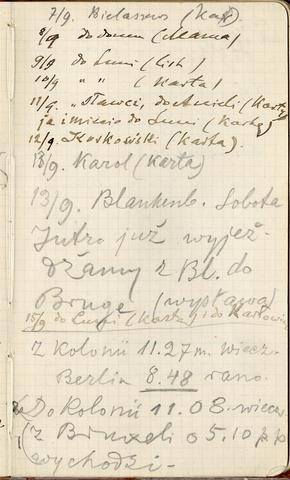 7/9. Bielassews (Karta).
8/9 do domu (Mama)
9/9 do Luni (list)
10/9 " " (Karta)
11/9. "Sławci, do Anieli (Karty)
ja i micio do Luni (Karty)
12/9. Koskowski (Karta).
13/9. Karol (Karta)
13/9. Blankenb. Sobota
Jutro już wyjeż-
dżamy z Bl. do
Bruge (wystawa)
15/9 do Luni (Karta) i do Karłowicz
Z Kolonii 11.27 m. wiecz.
Berlin 8.48 rano.
Do Kolonii 11.08. wiecz.
(z Bruxeli o 5.10 p.p.
wychodzi-